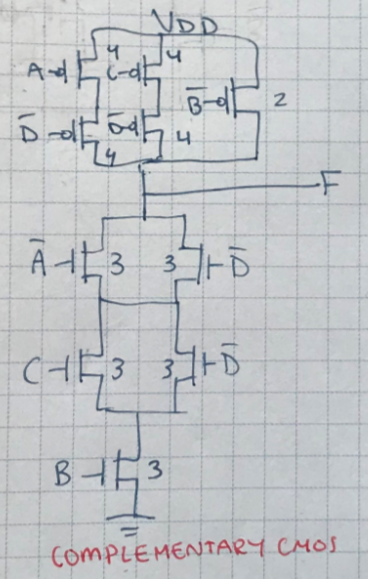 VDD
A 4 C 4
B̅ 2
D̅ 4 D̅ 4
F
A̅ 3 3 D̅
C 3 3 D̅
B 3
COMPLEMENTARY CMOS